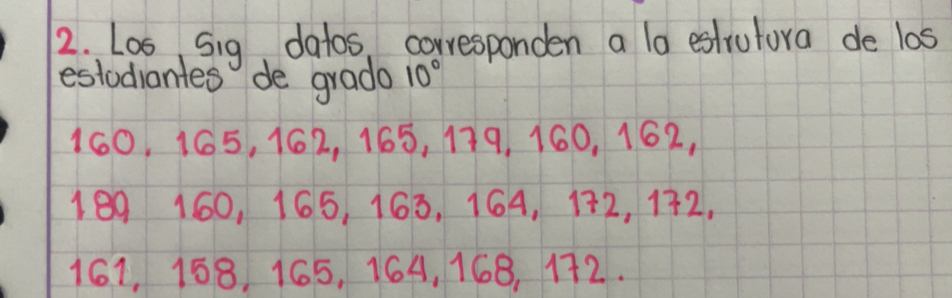 2. Los Sig datos, corresponden a la estrutura de los
estudiantes de grado 10°
160. 165, 162, 165, 179. 160, 162,
189 160, 165, 163. 164, 172, 172.
161, 158, 165, 164, 168, 172.